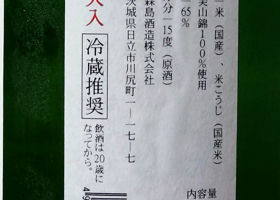 米(国産)、米こうじ(国産米)
美山錦100%使用
65%
分 15度(原酒)
森島酒造株式会社
茨城県日立市川尻町一―一七―七
冷蔵推奨
飲酒は20歳に
なってから。
内容量